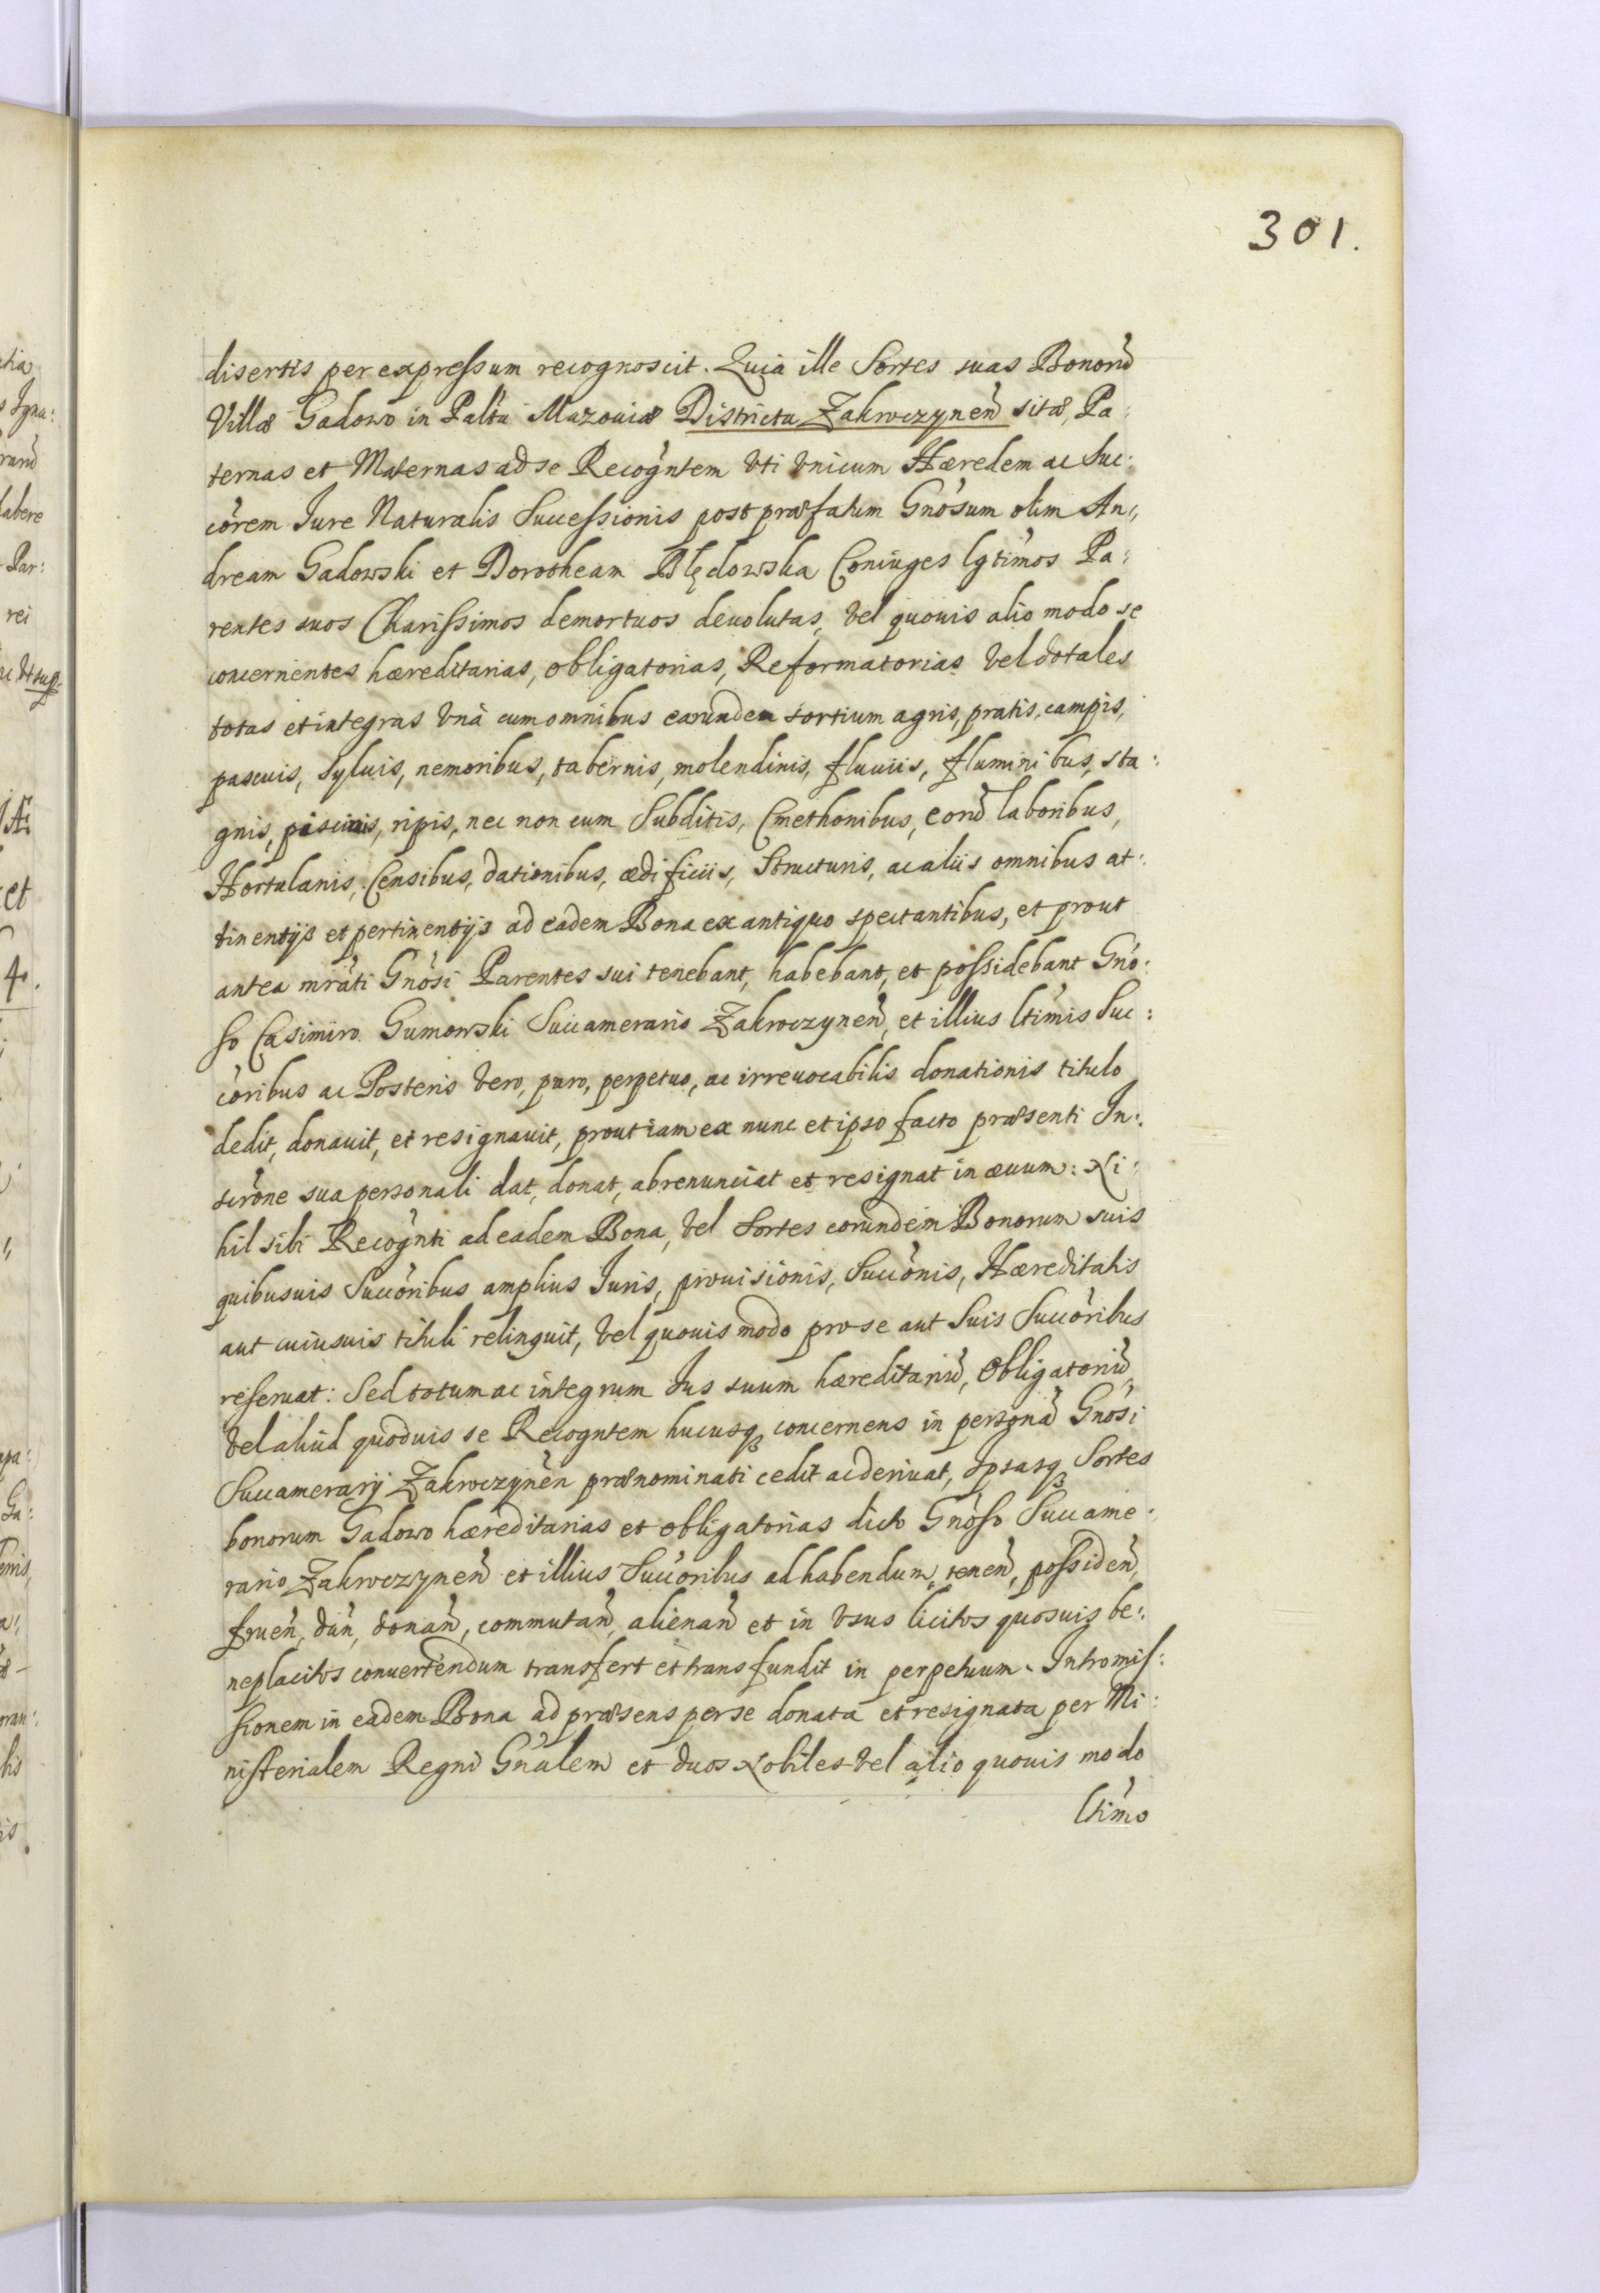 301.
disertis per expressum recognoscit. Quia ille Sortes suas Bonorũ
Villæ Gadowo in Palt̃u Mazouiæ Districtu Zakroczynen̄ sitæ, Pa:
ternas et Maternas ad se Recogñtem vti vnicum Hæredem ac Suc:
cõrem Iure Naturalis Successionis post præfatum Gñosum olim An:,
dream Gadowski et Dorotheam Błędowska Coniuges lg̃timos Pa:
rentes suos Charissimos demortuos deuolutas, vel quouis alio modo se
concernentes hæreditarias, obligatorias, Reformatorias vel dotales
totas et integras vnà cum omnibus earundem sortium agris, pratis, campis,
pascuis, syluis, nemoribus, tabernis, molendinis, fluuiis, fluminibus, sta:
gnis, piscinis, ripis, nec non cum Subditis, Cmethonibus, eorũ laboribus,
Hortulanis, Censibus, dationibus, ædificiis, Structuris, ac aliis omnibus at:
tinentijs et pertinentijs ad eadem Bona ex antiquo spectantibus, et prout
antea mrãti Gñosi Parentes sui tenebant, habebant, et possidebant Gño:
so Casimiro Gumowski Succamerario Zakroczynen̄, et illius ltĩmis Suc:
cõribus ac Posteris vero, puro, perpetuo, ac irreuocabilis donationis titulo
dedit, donauit, et resignauit, prout iam ex nunc et ipso facto præsenti In:
scrõne sua personali dat, donat, abrenunciat et resignat in æuum: Ni:
hil sibi Recogñti ad eadem Bona, vel Sortes eorundem Bonorum suis
quibusuis Succõribus amplius Iuris, prouisionis, Succõnis, Hæreditatis
aut cuiusuis tituli relinquit, vel quouis modo pro se aut Suis Succõribus
reseruat: Sed totum ac integrum Ius suum hæreditariũ, Obligatoriũ,
vel aliud quoduis se Recogntem hucusq́ concernens in personã Gñosi
Succamerarij Zakroczynen̄ prænominati cedit ac deriuat, Ipsasq́ Sortes
bonorum Gadowo hæreditarias et obligatorias dicto Gñoso Succame:
rario Zakroczynen̄ et illius Succõribus ad habendum, tenen̄, possiden̄,
fruen̄, dan̄, donan̄, commutan̄, alienan̄ et in vsus licitos quosuis be:
neplacitos conuertendum transfert et transfundit in perpetuum. Intromis:
sionem in eadem Bona ad præsens per se donata et resignata per Mi:
nisterialem Regni Gñalem et duos Nobiles vel alio quouis modo
ltĩmo